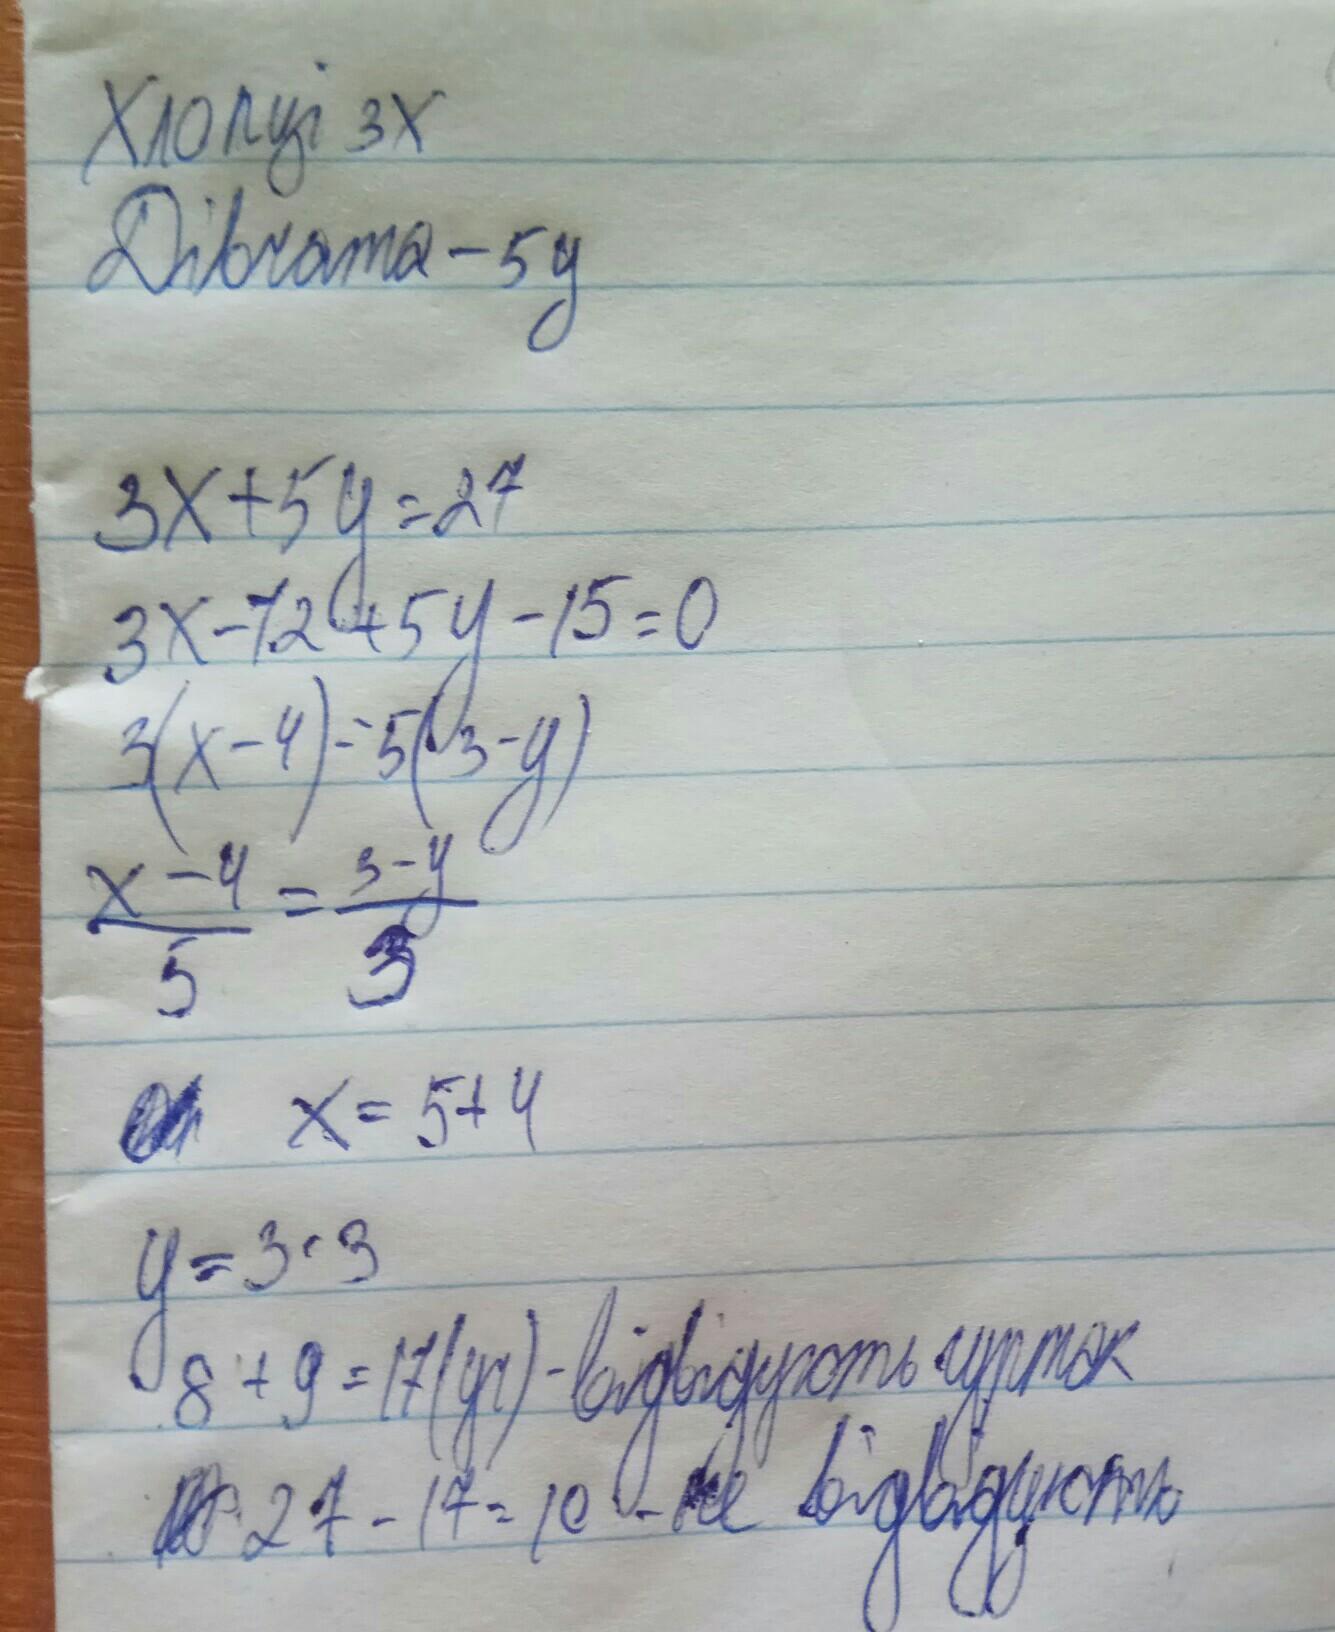 Хлопці 3x
Дівчата - 5y
3x+5y=27
3x-12+5y-15=0
3(x-4)=5(3-y)
x-4/5 = 3-y/3
x = 5+4
y = 3·3
8+9=17(уч)-відвідують гурток
27-17=10 - не відвідують